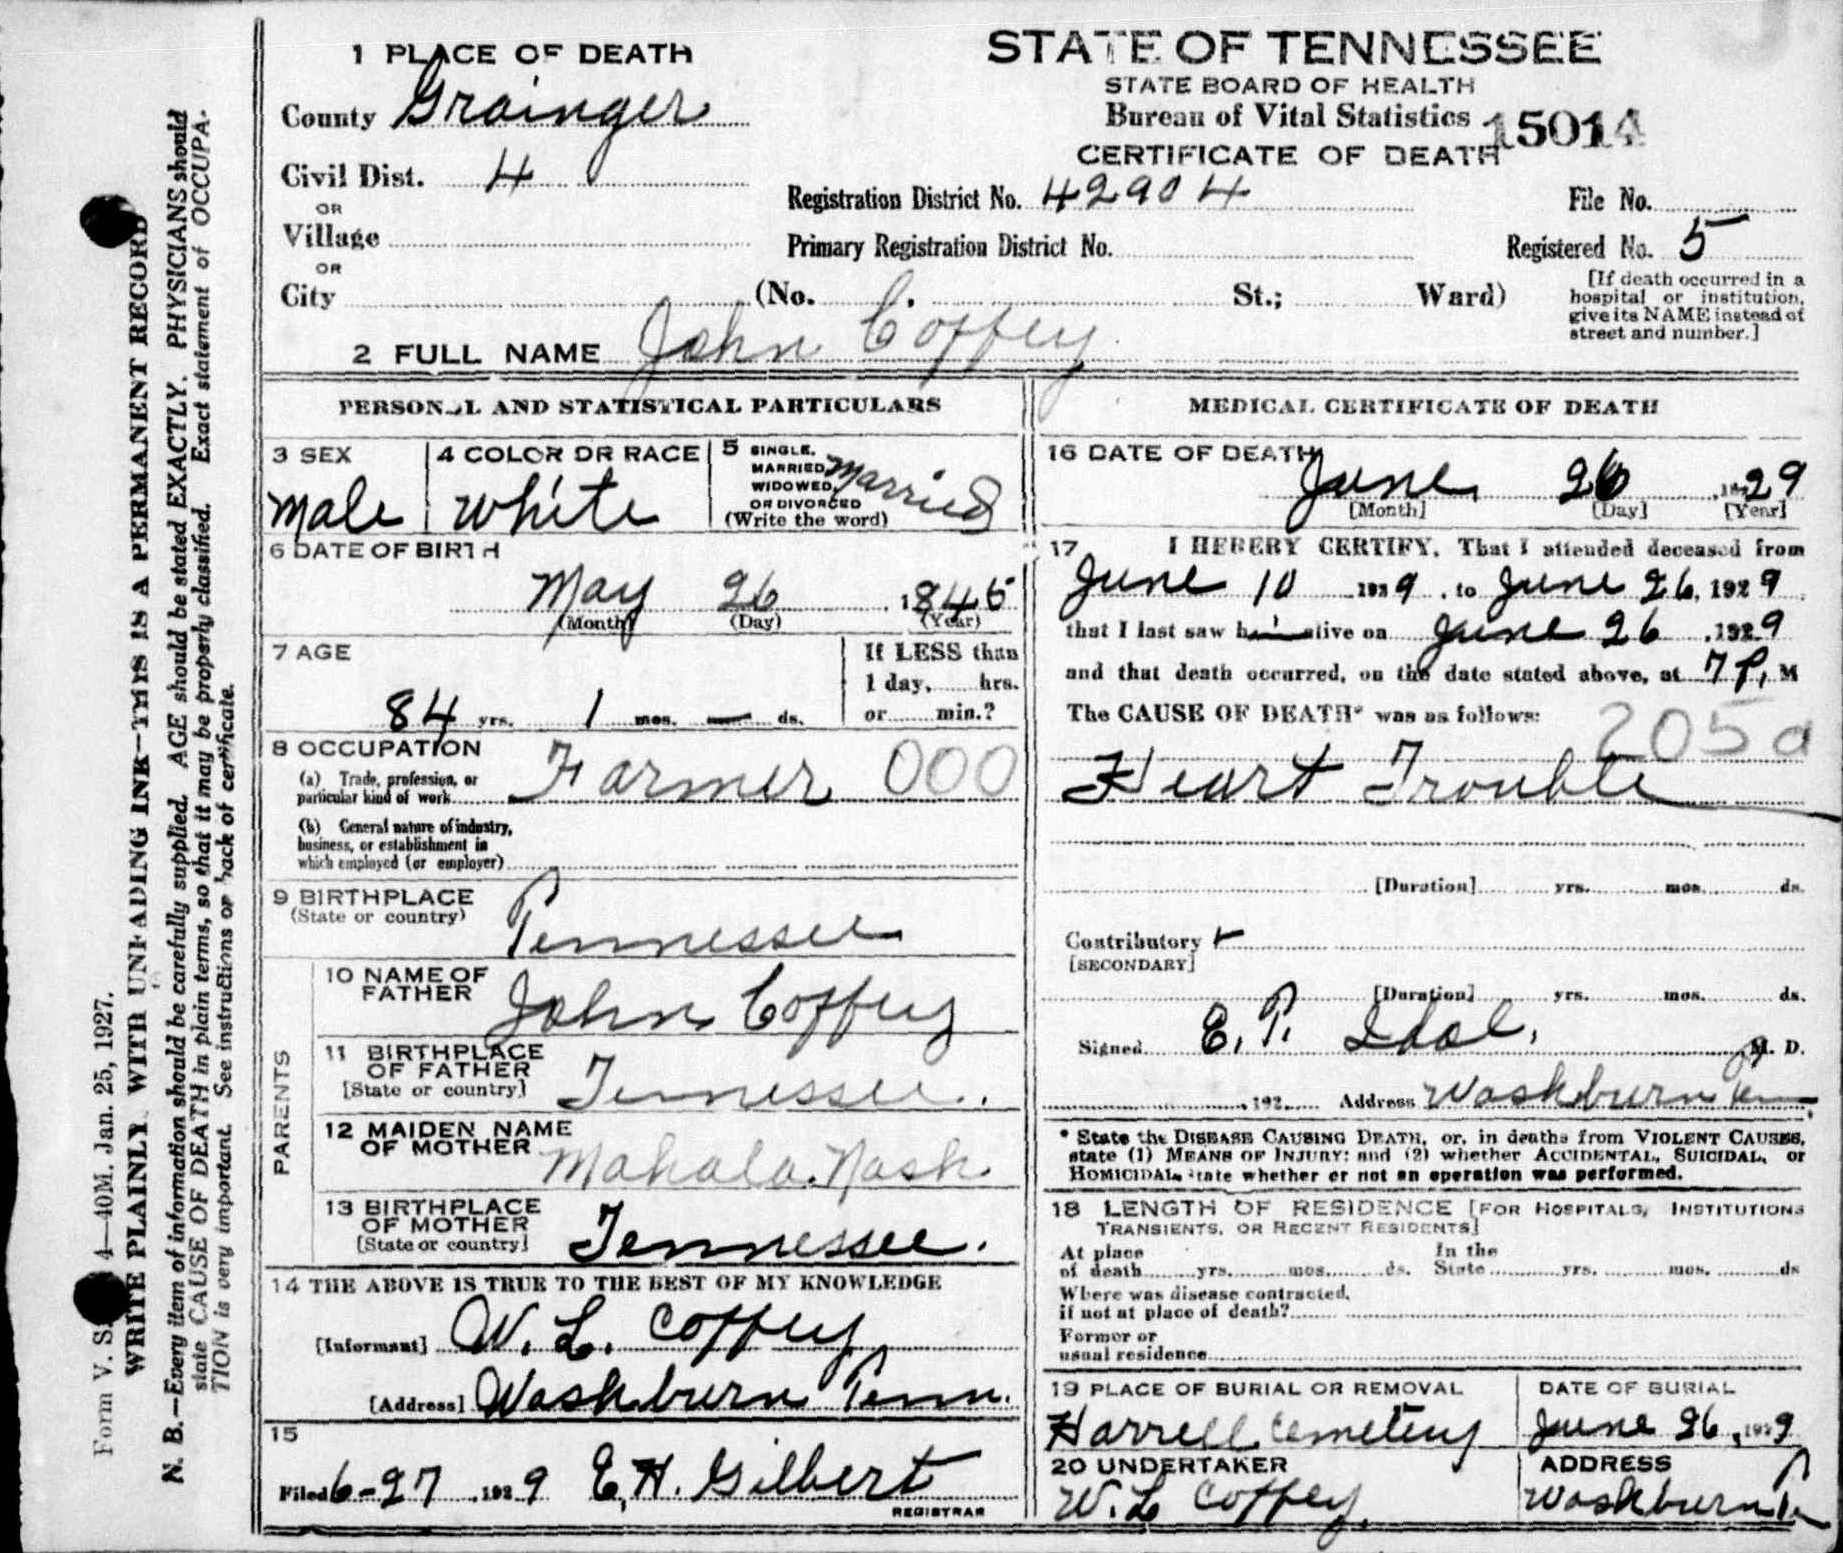 1 PLACE OF DEATH
County Grainger
Civil Dist. 4
OR
Village
OR
City (No. St.; Ward)
STATE OF TENNESSEE
STATE BOARD OF HEALTH
Bureau of Vital Statistics 15014
CERTIFICATE OF DEATH
Registration District No. 42904 File No.
Primary Registration District No. Registered No. 5
[If death occurred in a
hospital or institution,
give its NAME instead of
street and number.]
2 FULL NAME John Coffey
PERSONAL AND STATISTICAL PARTICULARS
3 SEX
Male
4 COLOR OR RACE
White
5 SINGLE,
MARRIED,
WIDOWED,
OR DIVORCED
(Write the word)
Married
6 DATE OF BIRTH
May 26 1845
(Month) (Day) (Year)
7 AGE
84 yrs. 1 mos. — ds.
If LESS than
1 day, hrs.
or min.?
8 OCCUPATION
(a) Trade, profession, or
particular kind of work Farmer 000
(b) General nature of industry,
business, or establishment in
which employed (or employer)
9 BIRTHPLACE
(State or country) Tennessee
PARENTS
10 NAME OF
FATHER John Coffey
11 BIRTHPLACE
OF FATHER
[State or country] Tennessee.
12 MAIDEN NAME
OF MOTHER Mahala Nash
13 BIRTHPLACE
OF MOTHER
[State or country] Tennessee.
14 THE ABOVE IS TRUE TO THE BEST OF MY KNOWLEDGE
[Informant] W. L. Coffey
[Address] Washburn Tenn.
15
Filed 6-27, 1929 E. H. Gilbert
REGISTRAR
MEDICAL CERTIFICATE OF DEATH
16 DATE OF DEATH
June 26, 1929
[Month] [Day] [Year]
17 I HEREBY CERTIFY, That I attended deceased from
June 10 1929, to June 26, 1929,
that I last saw him alive on June 26, 1929
and that death occurred, on the date stated above, at 7 P. M
The CAUSE OF DEATH* was as follows:
205a
Heart Trouble
[Duration] yrs. mos. ds.
Contributory
[SECONDARY]
[Duration] yrs. mos. ds.
Signed E. P. Idol, M. D.
, 192 Address Washburn Tenn
* State the DISEASE CAUSING DEATH, or, in deaths from VIOLENT CAUSES,
state (1) MEANS OF INJURY; and (2) whether ACCIDENTAL, SUICIDAL, or
HOMICIDAL, state whether or not an operation was performed.
18 LENGTH OF RESIDENCE [FOR HOSPITALS, INSTITUTIONS
TRANSIENTS, OR RECENT RESIDENTS]
At place
of death yrs. mos. ds.
In the
State yrs. mos. ds
Where was disease contracted,
if not at place of death?
Former or
usual residence
19 PLACE OF BURIAL OR REMOVAL
Harrell Cemetery
DATE OF BURIAL
June 26, 1929
20 UNDERTAKER
W. L Coffey
ADDRESS
Washburn
Form V. S. 4—40M. Jan. 25, 1927.
WRITE PLAINLY, WITH UNFADING INK—THIS IS A PERMANENT RECORD
N. B.—Every item of information should be carefully supplied. AGE should be stated EXACTLY. PHYSICIANS should
state CAUSE OF DEATH in plain terms, so that it may be properly classified. Exact statement of OCCUPA-
TION is very important. See instructions on back of certificate.